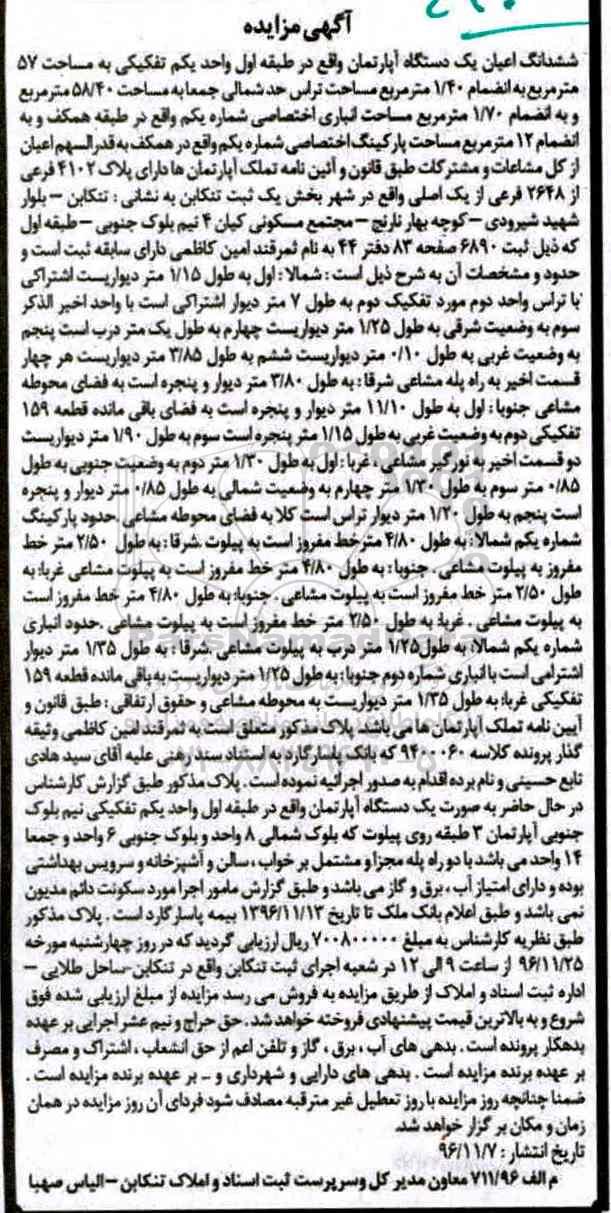 آگهی مزایده
ششدانگ اعیان یک دستگاه آپارتمان واقع در طبقه اول واحد یکم تفکیکی به مساحت ۵۷
مترمربع به انضمام ۱/۴۰ مترمربع مساحت تراس حد شمالی جمعا به مساحت ۵۸/۴۰ مترمربع
و به انضمام ۱/۷۰ مترمربع مساحت انباری اختصاصی شماره یکم واقع در طبقه همکف و به
انضمام ۱۲ مترمربع مساحت پارکینگ اختصاصی شماره یکم واقع در همکف به قدرالسهم اعیان
از کل مشاعات و مشترکات طبق قانون و آئین نامه تملک آپارتمان ها دارای پلاک ۴۱۰۲ فرعی
از ۲۶۴۸ فرعی از یک اصلی واقع در شهر بخش یک ثبت تنکابن به نشانی : تنکابن – بلوار
شهید شیرودی – کوچه بهار نارنج – مجتمع مسکونی کیان ۴ نیم بلوک جنوبی – طبقه اول
که ذیل ثبت ۶۸۹۰ صفحه ۸۳ دفتر ۴۴ به نام ثمرقند امین کاظمی دارای سابقه ثبت است و
حدود و مشخصات آن به شرح ذیل است : شمالا : اول به طول ۱/۱۵ متر دیواریست اشتراکی
با تراس واحد دوم مورد تفکیک دوم به طول ۷ متر دیوار اشتراکی است با واحد اخیر الذکر
سوم به وضعیت شرقی به طول ۱/۲۵ متر دیواریست چهارم به طول یک متر درب است پنجم
به وضعیت غربی به طول ۰/۱۰ متر دیواریست ششم به طول ۳/۸۵ متر دیواریست هر چهار
قسمت اخیر به راه پله مشاعی شرقا : به طول ۳/۸۰ متر دیوار و پنجره است به فضای محوطه
مشاعی جنوبا : اول به طول ۱۱/۱۰ متر دیوار و پنجره است به فضای باقی مانده قطعه ۱۵۹
تفکیکی دوم به وضعیت غربی به طول ۱/۱۵ متر پنجره است سوم به طول ۱/۹۰ متر دیواریست
دو قسمت اخیر به نورگیر مشاعی ، غربا : اول به طول ۱/۳۰ متر دوم به وضعیت جنوبی به طول
۰/۸۵ متر سوم به طول ۱/۳۰ متر چهارم به وضعیت شمالی به طول ۰/۸۵ متر دیوار و پنجره
است پنجم به طول ۱/۲۰ متر دیوار تراس است کلا به فضای محوطه مشاعی .حدود پارکینگ
شماره یکم شمالا : به طول ۴/۸۰ مترخط مفروز است به پیلوت .شرقا : به طول ۲/۵۰ متر خط
مفروز به پیلوت مشاعی . جنوبا : به طول ۴/۸۰ متر خط مفروز است به پیلوت مشاعی غربا: به
طول ۲/۵۰ متر خط مفروز است به پیلوت مشاعی . جنوبا: به طول ۴/۸۰ متر خط مفروز است
به پیلوت مشاعی . غربا: به طول ۲/۵۰ متر خط مفروز است به پیلوت مشاعی .حدود انباری
شماره یکم شمالا: به طول۱/۲۵ متر درب به پیلوت مشاعی .شرقا : به طول ۱/۳۵ متر دیوار
اشتراکی است با انباری شماره دوم جنوبا : به طول ۱/۲۵ متر دیواریست به باقی مانده قطعه ۱۵۹
تفکیکی غربا: به طول ۱/۳۵ متر دیواریست به محوطه مشاعی و حقوق ارتفاقی : طبق قانون و
آیین نامه تملک آپارتمان ها می باشد. پلاک مذکور متعلق است به ثمرقند امین کاظمی وثیقه
گذار پرونده کلاسه ۹۴۰۰۰۶۰ که بانک پاسارگارد به استناد سند رهنی علیه آقای سید هادی
تابع حسینی و نام برده اقدام به صدور اجرائیه نموده است . پلاک مذکور طبق گزارش کارشناس
در حال حاضر به صورت یک دستگاه آپارتمان واقع در طبقه اول واحد یکم تفکیکی نیم بلوک
جنوبی آپارتمان ۳ طبقه روی پیلوت که بلوک شمالی ۸ واحد و بلوک جنوبی ۶ واحد و جمعا
۱۴ واحد می باشد با دو راه پله مجزا و مشتمل بر خواب ، سالن و آشپزخانه و سرویس بهداشتی
بوده و دارای امتیاز آب ، برق و گاز می باشد و طبق گزارش مامور اجرا مورد سکونت دائم مدیون
نمی باشد و طبق اعلام بانک ملک تا تاریخ ۱۳۹۶/۱۱/۱۳ بیمه پاسارگارد است . پلاک مذکور
طبق نظریه کارشناس به مبلغ ۷۰۰۸۰۰۰۰۰ ریال ارزیابی گردید که در روز چهارشنبه مورخه
۹۶/۱۱/۲۵ از ساعت ۹ الی ۱۲ در شعبه اجرای ثبت تنکابن واقع در تنکابن-ساحل طلایی –
اداره ثبت اسناد و املاک از طریق مزایده به فروش می رسد مزایده از مبلغ ارزیابی شده فوق
شروع و به بالاترین قیمت پیشنهادی فروخته خواهد شد . حق حراج و نیم عشر اجرایی بر عهده
بدهکار پرونده است . بدهی های آب ، برق ، گاز و تلفن اعم از حق انشعاب ، اشتراک و مصرف
بر عهده برنده مزایده است . بدهی های دارایی و شهرداری و ... بر عهده برنده مزایده است .
ضمنا چنانچه روز مزایده با روز تعطیل غیر مترقبه مصادف شود فردای آن روز مزایده در همان
زمان و مکان برگزار خواهد شد.
تاریخ انتشار : ۹۶/۱۱/۷
م الف ۷۱۱/۹۶ معاون مدیر کل وسرپرست ثبت اسناد و املاک تنکابن – الیاس صهبا